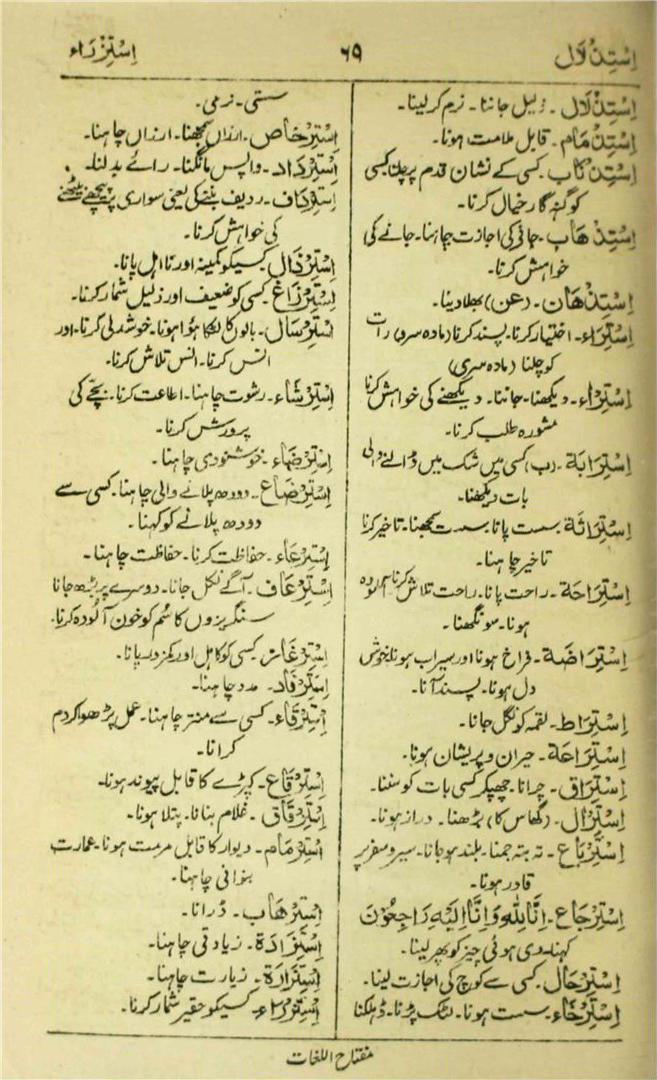 اِسْتِذْلَال
۶۹
اِسْتِزْرَاء
اِسْتِذْلَال۔ ذلیل جاننا۔ نرم کر لینا۔
اِسْتِذْمَام۔ قابل ملامت ہونا۔
اِسْتِذْنَاب۔ کسی کے نشان قدم پر چلنا کسی
کو گنہگار خیال کرنا۔
اِسْتِذْهَاب۔ جانے کی اجازت چاہنا۔ جانے کی
خواہش کرنا۔
اِسْتِذْهَان۔ (عن) بھلا دینا۔
اِسْتِرَاء۔ اختیار کرنا۔ پسند کرنا (مادہ سرو) رات
کو چلنا (مادہ سری)
اِسْتِرْاء۔ دیکھنا۔ جاننا۔ دیکھنے کی خواہش کرنا
مشورہ طلب کرنا۔
اِسْتِرَابَة۔ (ب) کسی میں شک میں ڈالنے والی
بات دیکھنا۔
اِسْتِرَاثَة۔ سست پانا۔ سست سمجھنا۔ تاخیر کرنا
تاخیر چاہنا۔
اِسْتِرَاحَة۔ راحت پانا۔ راحت تلاش کرنا۔ آسودہ
ہونا۔ سونگھنا۔
اِسْتِرَاضَة۔ فراخ ہونا اور سیراب ہونا۔ خوش
دل ہونا۔ پسند آنا۔
اِسْتِرَاط۔ لقمہ کو نگل جانا۔
اِسْتِرَاعَة۔ حیران و پریشان ہونا۔
اِسْتِرَاق۔ چرانا۔ چھپکر کسی بات کو سننا۔
اِسْتِرْال۔ (گھاس کا) بڑھنا۔ دراز ہونا۔
اِسْتِرْبَاع۔ تہ بتہ جمنا۔ بلند ہو جانا۔ سیر و سفر پر
قادر ہونا۔
اِسْتِرْجَاع۔ اِنَّا لِلّٰهِ وَ اِنَّا اِلَيْهِ رَاجِعُوْنَ
کہنا۔ دی ہوئی چیز کو پھر لینا۔
اِسْتِرْحَال۔ کسی سے کوچ کی اجازت لینا۔
اِسْتِرْخَاء۔ سست ہونا۔ لٹک پڑنا۔ ڈھلکنا
سستی۔ نرمی۔
اِسْتِرْخَاص۔ ارزاں سمجھنا۔ ارزاں چاہنا۔
اِسْتِرْدَاد۔ واپس مانگنا۔ رائے بدلنا۔
اِسْتِرْدَاف۔ ردیف بننے کی یعنی سواری پر پیچھے بیٹھنے
کی خواہش کرنا۔
اِسْتِرْذَال۔ کسیکو کمینہ اور نا اہل پانا۔
اِسْتِرْزَاغ۔ کسی کو ضعیف اور ذلیل شمار کرنا۔
اِسْتِرْسَال۔ بالوں کا لٹکا ہوا ہونا۔ خوشدلی کرنا۔ اور
انس کرنا۔ انس تلاش کرنا۔
اِسْتِرْشَاء۔ رشوت چاہنا۔ اطاعت کرنا۔ بچّے کی
پرورش کرنا۔
اِسْتِرْضَاء۔ خوشنودی چاہنا۔
اِسْتِرْضَاع۔ دودھ پلانے والی چاہنا۔ کسی سے
دودھ پلانے کو کہنا۔
اِسْتِرْعَاء۔ حفاظت کرنا۔ حفاظت چاہنا۔
اِسْتِرْعَاف۔ آگے نکل جانا۔ دوسرے پر بڑھ جانا
سنگریزوں کا سُم کو خون آلودہ کرنا۔
کسی کو کاہل اور کمزور پانا۔
اِسْتِرْفَاد۔ مدد چاہنا۔
اِسْتِرْقَاء۔ کسی سے منتر چاہنا۔ عمل پڑھوا کر دم
کرانا۔
اِسْتِرْقَاع۔ کپڑے کا قابل پیوند ہونا۔
اِسْتِرْقَاق۔ غلام بنانا۔ پتلا ہونا۔
اِسْتِرْمَام۔ دیوار کا قابل مرمت ہونا۔ عمارت
بنوانی چاہنا۔
اِسْتِرْهَاب۔ ڈرانا۔
اِسْتِزَادَة۔ زیادتی چاہنا۔
اِسْتِزَارَة۔ زیارت چاہنا۔
اِسْتِزْرَاء۔ کسیکو حقیر شمار کرنا۔
مفتاح اللغات